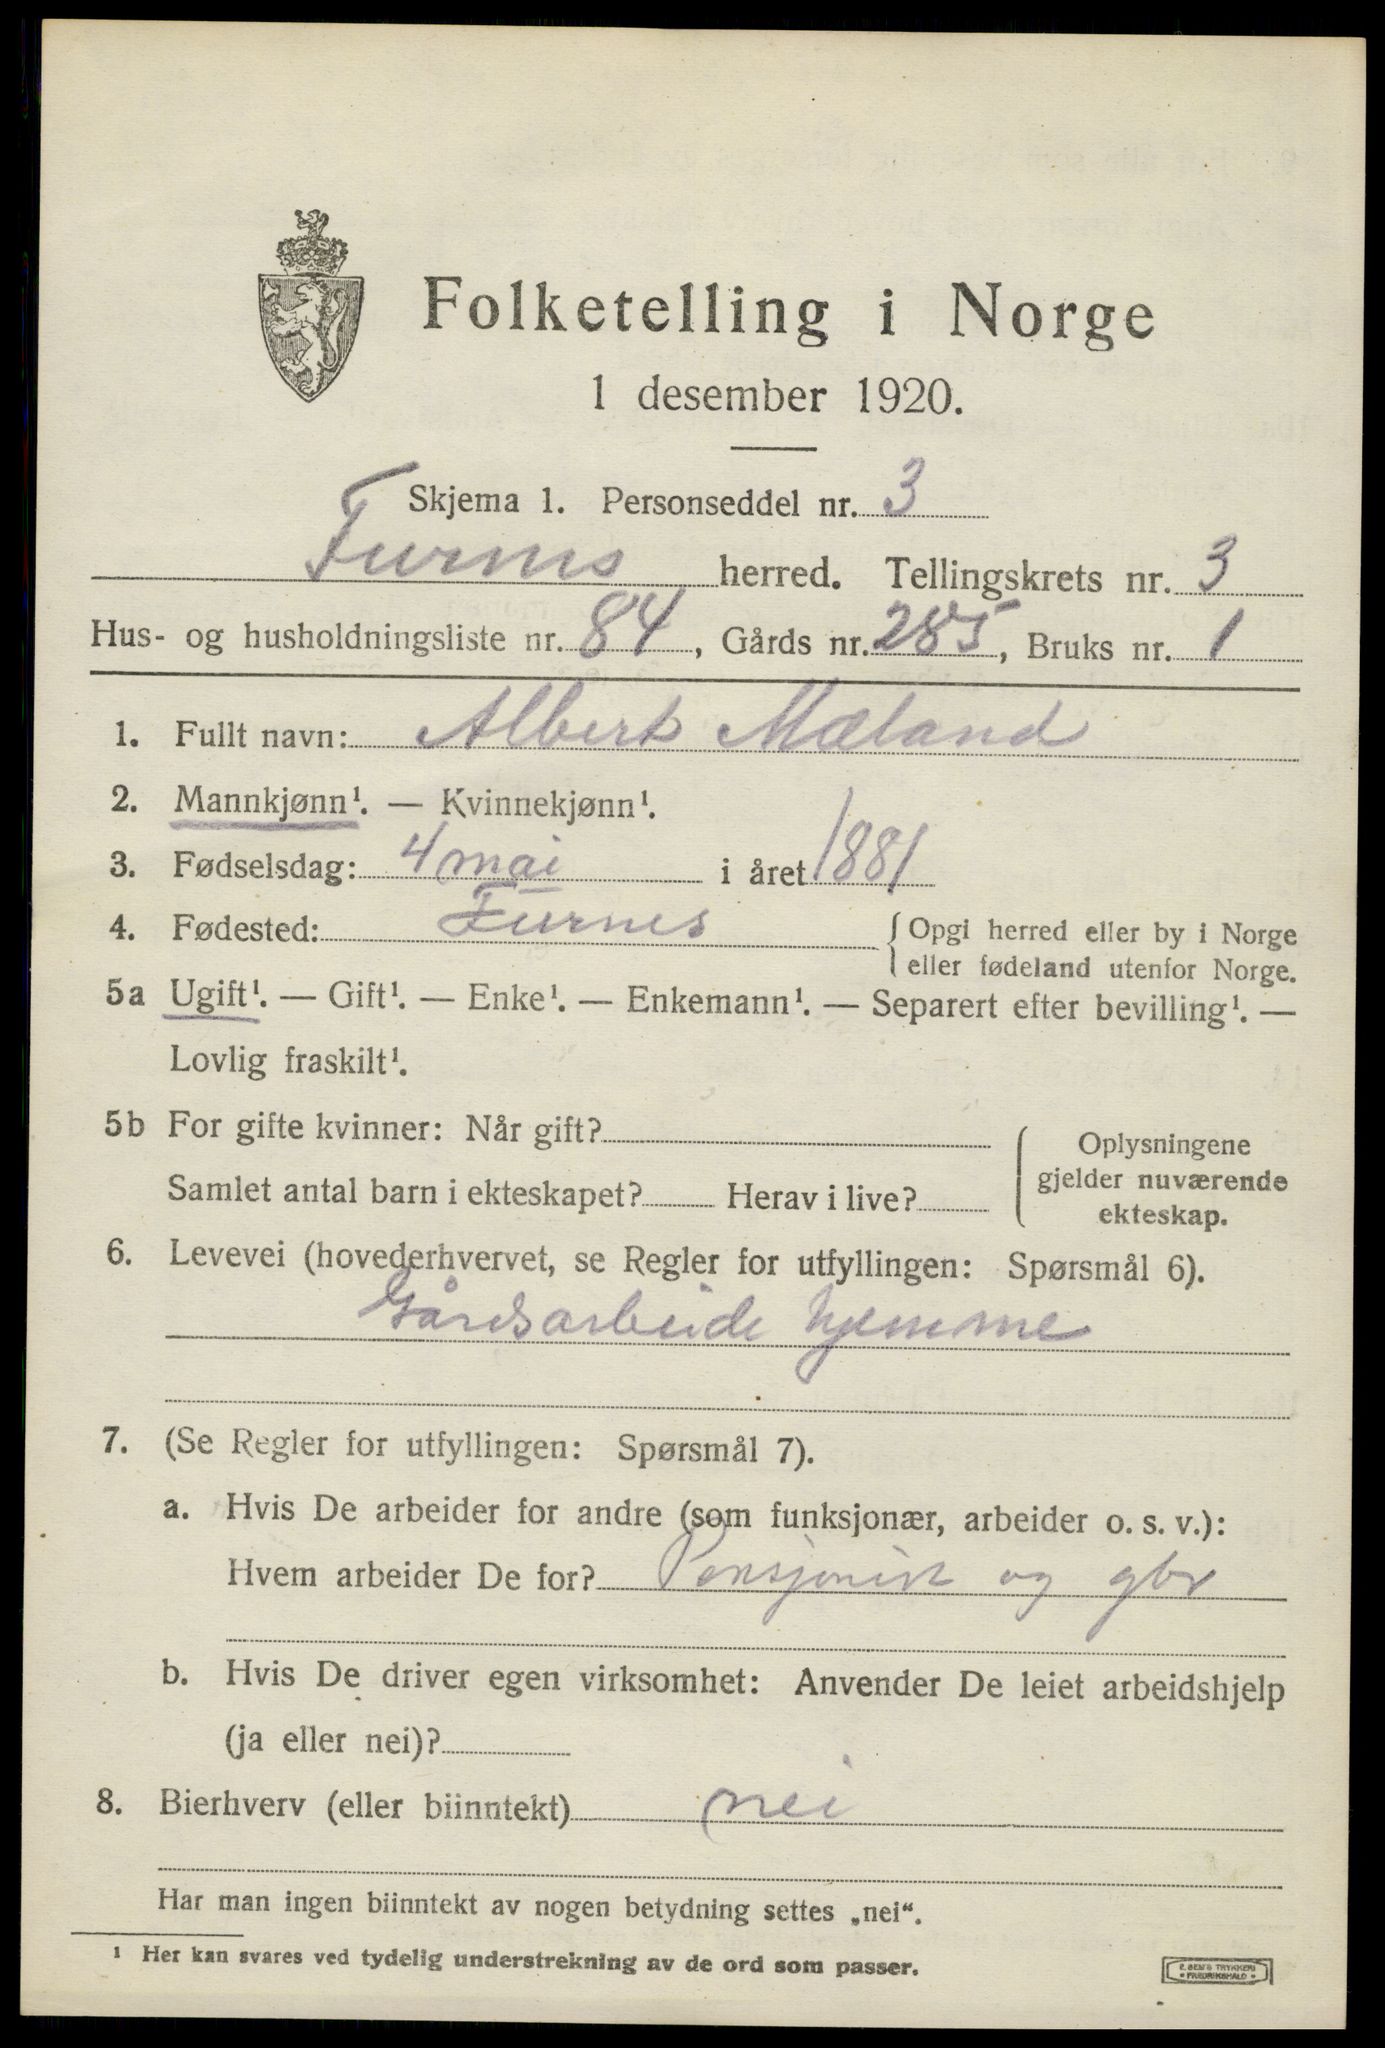 Folketelling i Norge
1 desember 1920.
Skjema 1. Personseddel nr. 3
Furnes herred. Tellingskrets nr. 3
Hus- og husholdningsliste nr. 84, Gårds nr. 285, Bruks nr. 1
1. Fullt navn: Albert Mæland
2. Mannkjønn¹. — Kvinnekjønn¹.
3. Fødselsdag: 4 mai i året 1881
4. Fødested: Furnes { Opgi herred eller by i Norge
eller fødeland utenfor Norge.
5a Ugift¹. — Gift¹. — Enke¹. — Enkemann¹. — Separert efter bevilling¹. —
Lovlig fraskilt¹.
5b For gifte kvinner: Når gift?
Samlet antal barn i ekteskapet? Herav i live?
Oplysningene
gjelder nuværende
ekteskap.
6. Levevei (hovederhvervet, se Regler for utfyllingen: Spørsmål 6).
Gårdsarbeide hjemme
7. (Se Regler for utfyllingen: Spørsmål 7).
a. Hvis De arbeider for andre (som funksjonær, arbeider o. s. v.):
Hvem arbeider De for? Pensjonist og gbr
b. Hvis De driver egen virksomhet: Anvender De leiet arbeidshjelp
(ja eller nei)?
8. Bierhverv (eller biinntekt) nei
Har man ingen biinntekt av nogen betydning settes „nei“.
¹ Her kan svares ved tydelig understrekning av de ord som passer.
TRYKKERI
FREDRIKSHALD